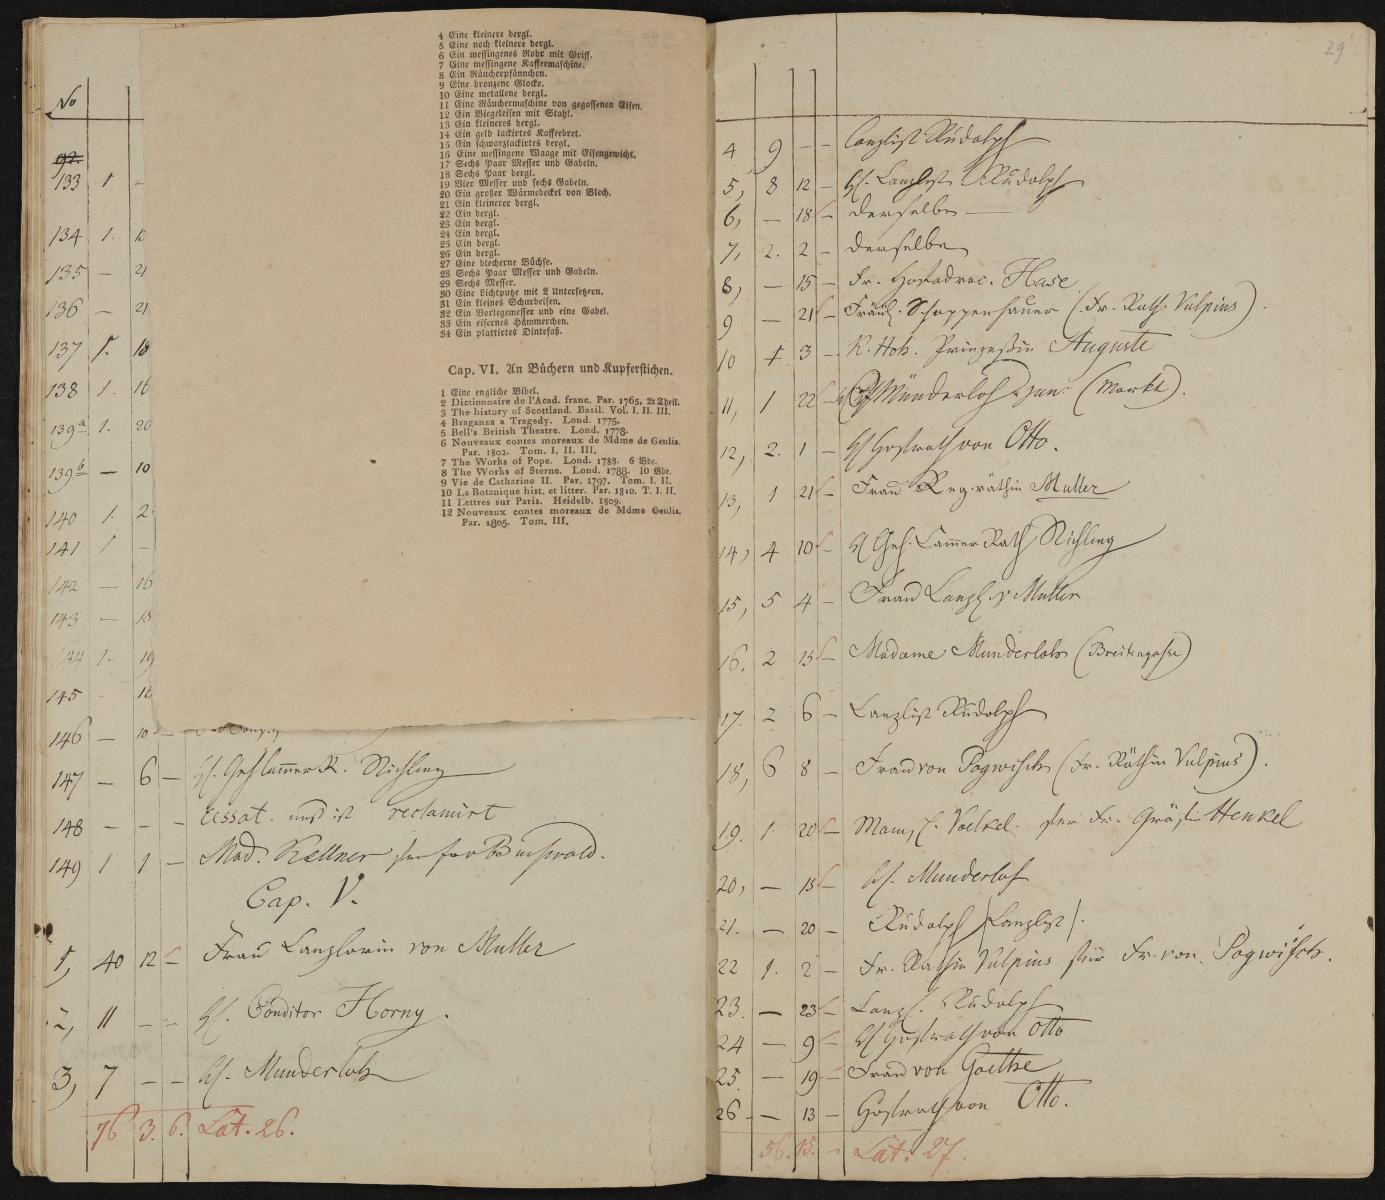 No
92.
133 1 -
134 1. 12
135 — 21
136 — 21
137 1. 18
138 1. 16
139a 1. 20
139b — 10
140 1. 2
141 1 —
142 — 16
143 — 18
144 1. 19
145 - 16
146 — 10 —
147 — 6 — H. Geh Cammer R. Nichling
148 — — — cessat. und ist reclamirt
149 1 1 — Mad. Kellner
Cap. V.
1, 40 12 — Frau Canzlerin von Muller
2, 11 — — H. Conditor Horny.
3, 7 — — H. Munderloh
76 3. 6. Lat. 26.
4 Eine kleinere dergl.
5 Eine noch kleinere dergl.
6 Ein messingenes Rohr mit Griff.
7 Eine messingene Kaffeemaschine.
8 Ein Räucherpfännchen.
9 Eine bronzene Glocke.
10 Eine metallene dergl.
11 Eine Räuchermaschine von gegossenen Eisen.
12 Ein Biegeleisen mit Stahl.
13 Ein kleineres dergl.
14 Ein gelb lackirtes Kaffeebret.
15 Ein schwarzlackirtes dergl.
16 Eine messingene Waage mit Eisengewicht.
17 Sechs Paar Messer und Gabeln.
18 Sechs Paar dergl.
19 Vier Messer und sechs Gabeln.
20 Ein großer Wärmedeckel von Blech.
21 Ein kleinerer dergl.
22 Ein dergl.
23 Ein dergl.
24 Ein dergl.
25 Ein dergl.
26 Ein dergl.
27 Eine blecherne Büchse.
28 Sechs Paar Messer und Gabeln.
29 Sechs Messer.
30 Eine Lichtputze mit 2 Untersetzern.
31 Ein kleines Schurbeisen.
32 Ein Vorlegemesser und eine Gabel.
33 Ein eisernes Hämmerchen.
34 Ein plattirtes Dintefaß.
Cap. VI. An Büchern und Kupferstichen.
1 Eine engliche Bibel.
2 Dictionnaire de l'Acad. franc. Par. 1765. 2r Theil.
3 The history of Scottland. Basil. Vol. I. II. III.
4 Braganza a Tragedy. Lond. 1775.
5 Bell's British Theatre. Lond. 1778.
6 Nouveaux contes moreaux de Mdme de Genlis.
Par. 1802. Tom. I. II. III.
7 The Works of Pope. Lond. 1788. 6 Bde.
8 The Works of Sterne. Lond. 1788. 10 Bde.
9 Vie de Catharine II. Par. 1797. Tom. I. II.
10 La Botanique hist. et litter. Par. 1810. T. I. II.
11 Lettres sur Paris. Heidelb. 1809.
12 Nouveaux contes moreaux de Mdme Genlis.
Par. 1805. Tom. III.
29
4 9 — — Canzlist Rudolph
5, 8 12 — H. Canzlist Rudolph
6, — 18 — derselbe —
7, 2. 2 — derselbe
8, — 15 — Fr. Hofadvoc. Hase
9 — 21 — Fräul. Schoppenhauer (Fr. Rath. Vulpius).
10 1 3 — K. Hoh. Prinzessin Auguste
11, 1 22 — H Münderloh jun. (Markt).
12, 2. 1 — H Hofrath von Otto.
13, 1 21 — Frau Reg.räthin Muller
14, 4 10 — H Geh. Cammer Rath Nichling
15, 5 4 — Frau Canzl. v Muller
16. 2 13 — Madame Munderloh (Breitengasse)
17. 2 6 — Canzlist Rudolph
18, 6 8 — Frau von Pogwisch (Fr. Räthin Vulpius).
19. 1. 20 — Mamsl. Voelkel. für Fr. Gräfin Henkel
20, — 13 — H. Munderloh
21. — 20 — Rudolph /Canzlist/.
22 1. 2 — Fr. Rathin Vulpius für Fr. von Pogwisch.
23. — 23 — Canzl. Rudolph
24 — 9 — H Hofrath von Otto
25. — 19 — Frau von Goethe
26 — 13 — Hofrath von Otto.
56. 15. — Lat. 27.